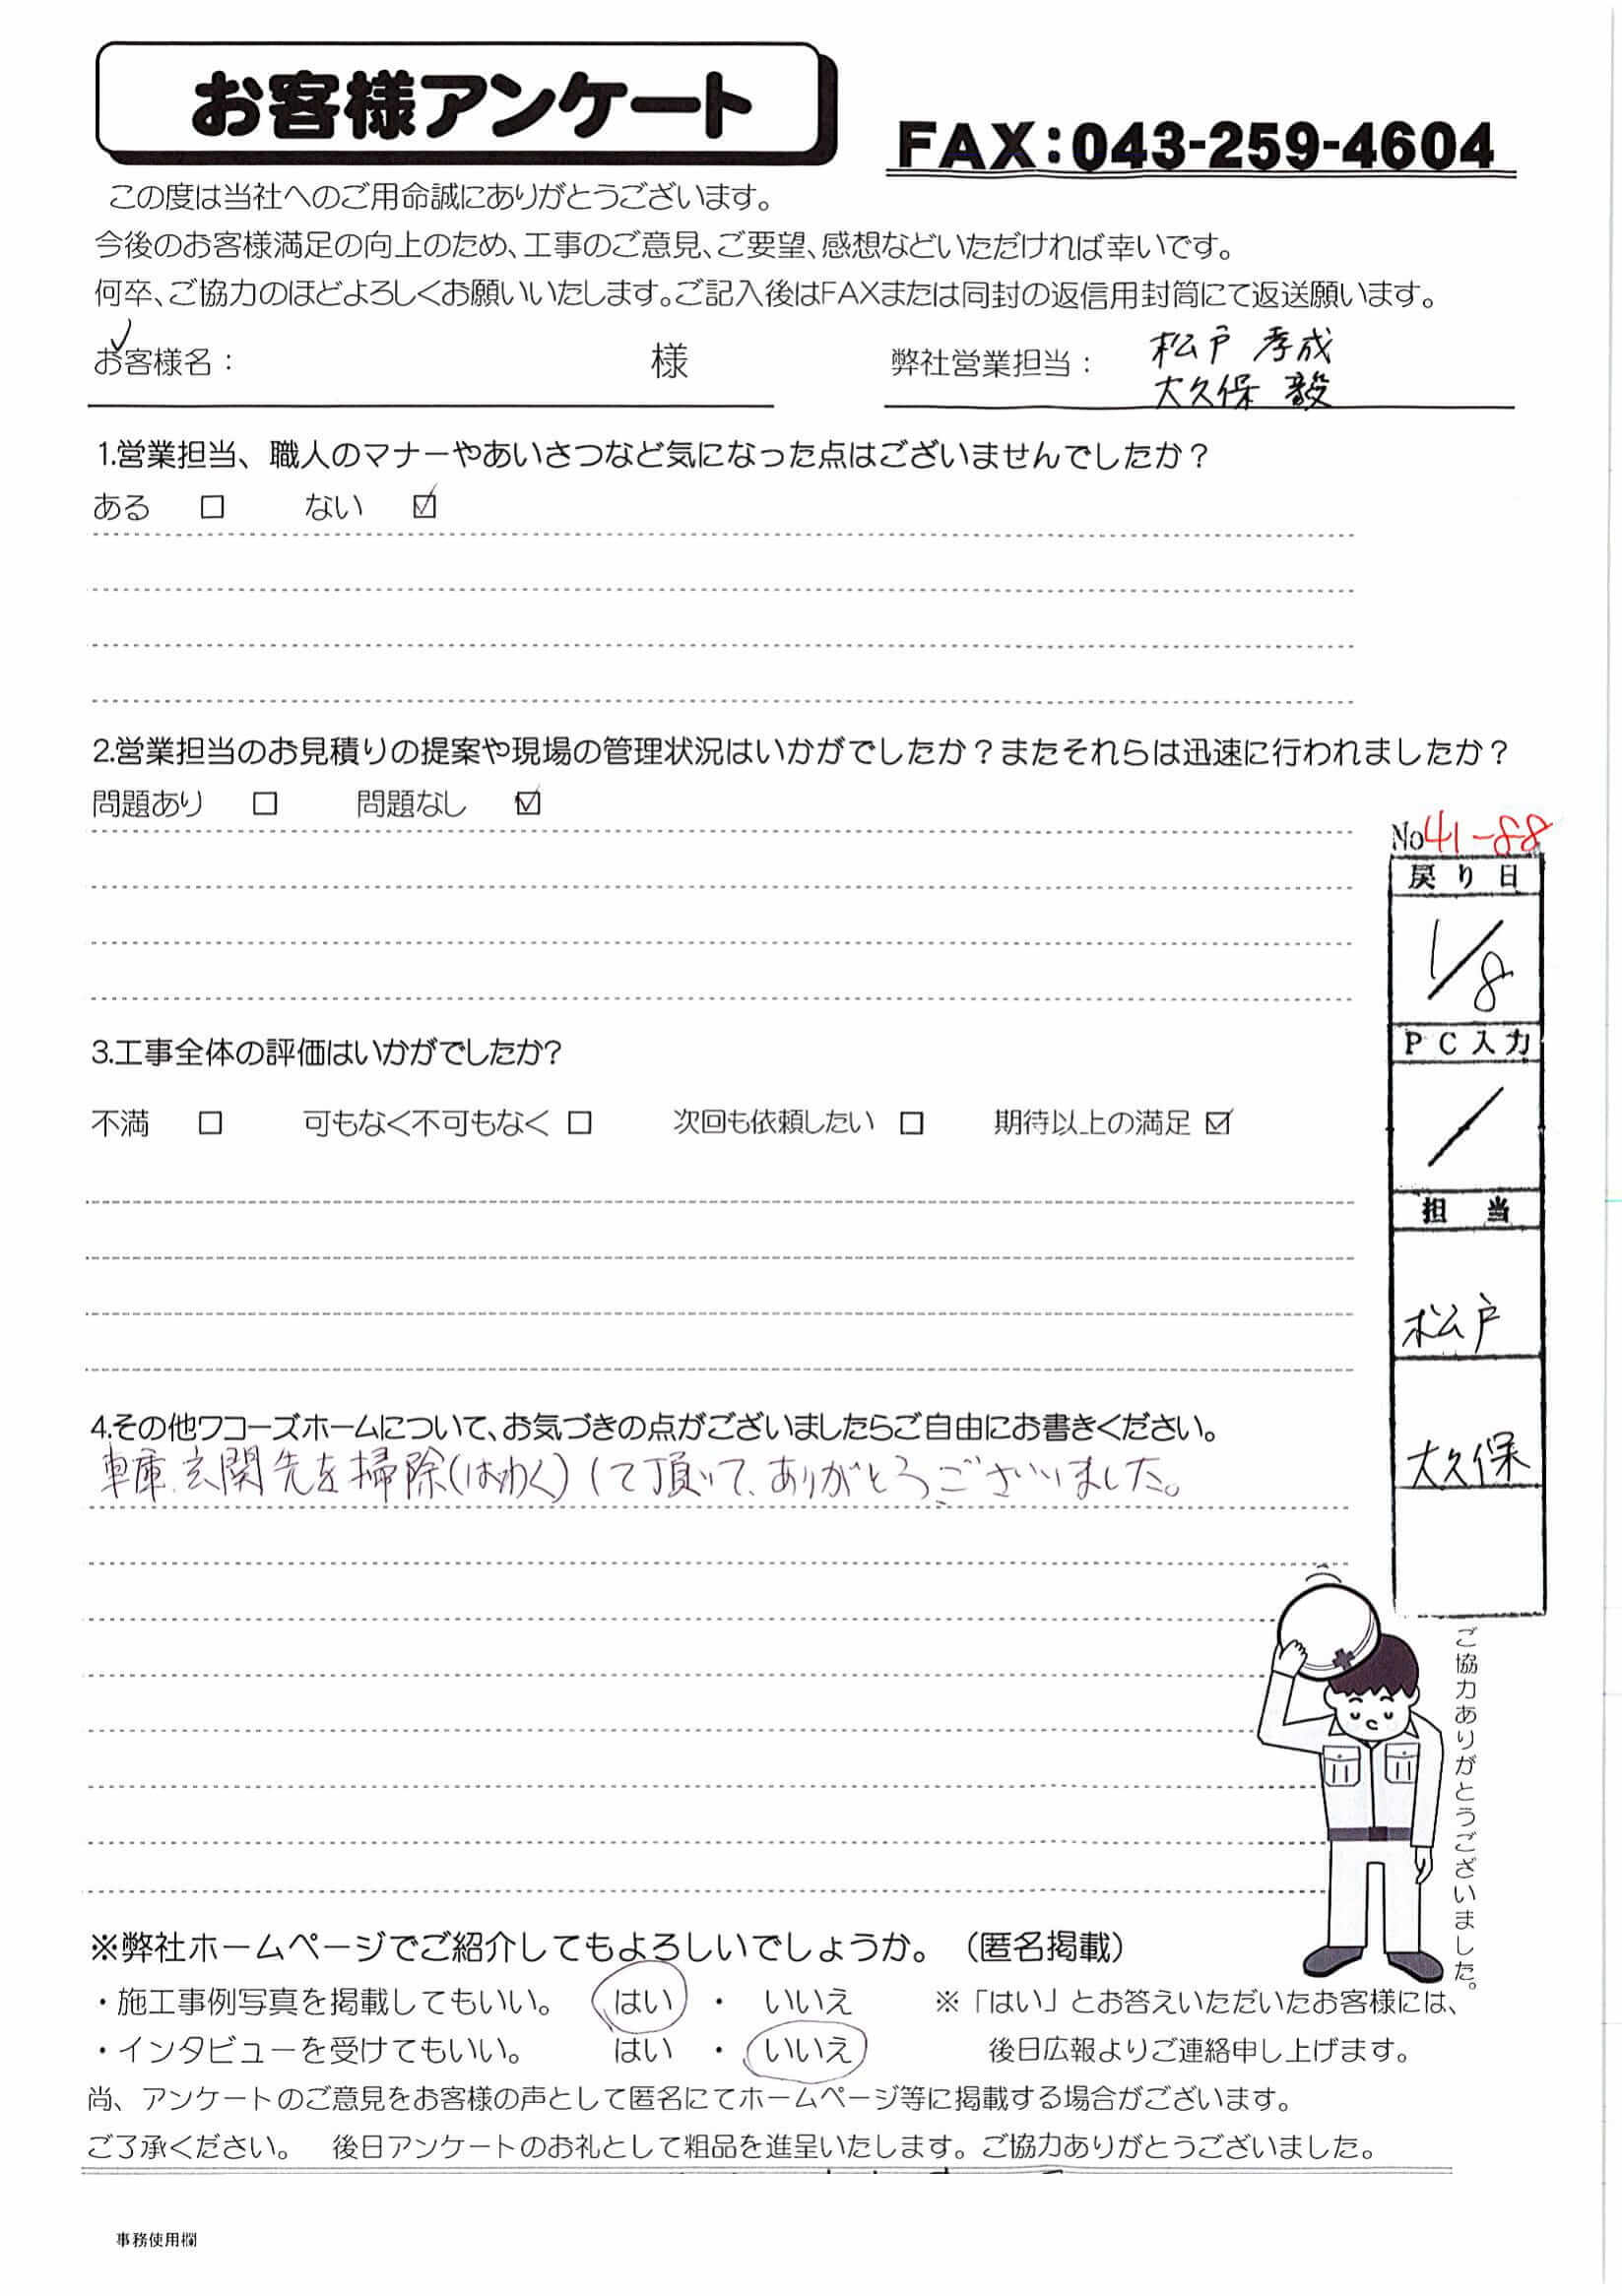 お客様アンケート
FAX:043-259-4604
この度は当社へのご用命誠にありがとうございます。
今後のお客様満足の向上のため、工事のご意見、ご要望、感想などいただければ幸いです。
何卒、ご協力のほどよろしくお願いいたします。ご記入後はFAXまたは同封の返信用封筒にて返送願います。
お客様名： 様 弊社営業担当： 松戸 孝成
大久保 毅
1.営業担当、職人のマナーやあいさつなど気になった点はございませんでしたか？
ある □ ない ☑
2.営業担当のお見積りの提案や現場の管理状況はいかがでしたか？またそれらは迅速に行われましたか？
問題あり □ 問題なし ☑
No 41-88
戻り日
1/8
PC入力
/
担当
松戸
大久保
3.工事全体の評価はいかがでしたか?
不満 □ 可もなく不可もなく □ 次回も依頼したい □ 期待以上の満足 ☑
4.その他ワコーズホームについて、お気づきの点がございましたらご自由にお書きください。
車庫、玄関先を掃除(はわく)して頂いて、ありがとうございました。
ご協力ありがとうございました。
※弊社ホームページでご紹介してもよろしいでしょうか。（匿名掲載）
・施工事例写真を掲載してもいい。 はい ・ いいえ ※「はい」とお答えいただいたお客様には、
・インタビューを受けてもいい。 はい ・ いいえ 後日広報よりご連絡申し上げます。
尚、アンケートのご意見をお客様の声として匿名にてホームページ等に掲載する場合がございます。
ご了承ください。 後日アンケートのお礼として粗品を進呈いたします。ご協力ありがとうございました。
事務使用欄